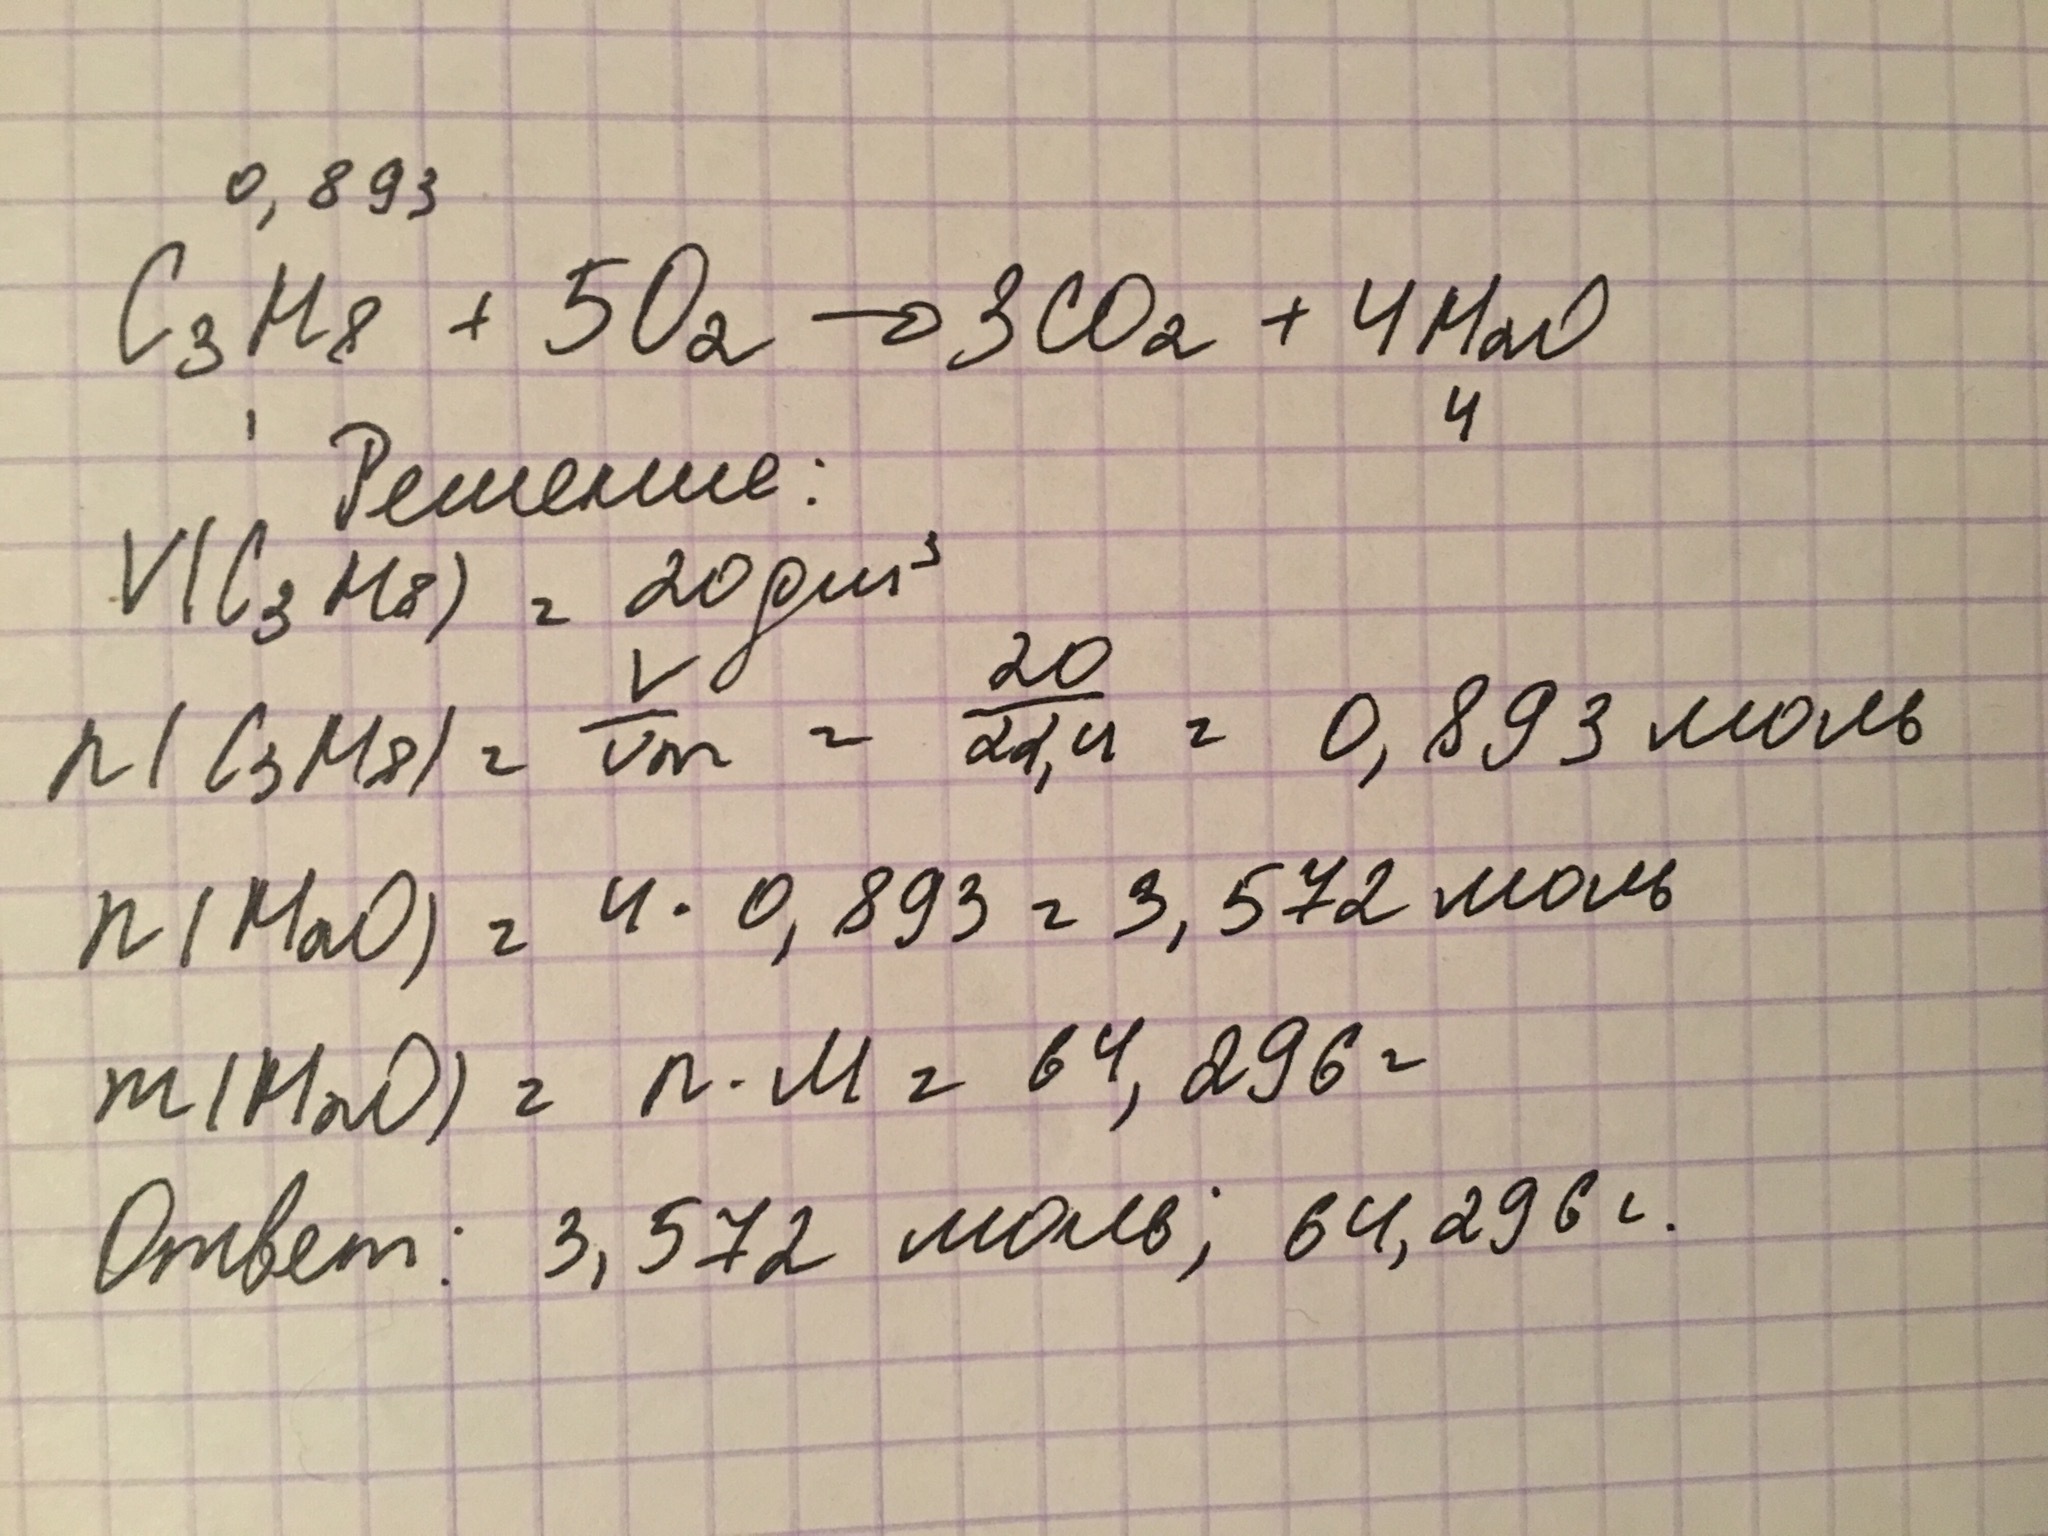 0,893
C₃H₈ + 5O₂ → 3CO₂ + 4H₂O
1 4
Решение:
V(C₃H₈) = 20 дм³
n(C₃H₈) = V/Vm = 20/22,4 = 0,893 моль
n(H₂O) = 4 · 0,893 = 3,572 моль
m(H₂O) = n · M = 64,296 г
Ответ: 3,572 моль; 64,296 г.